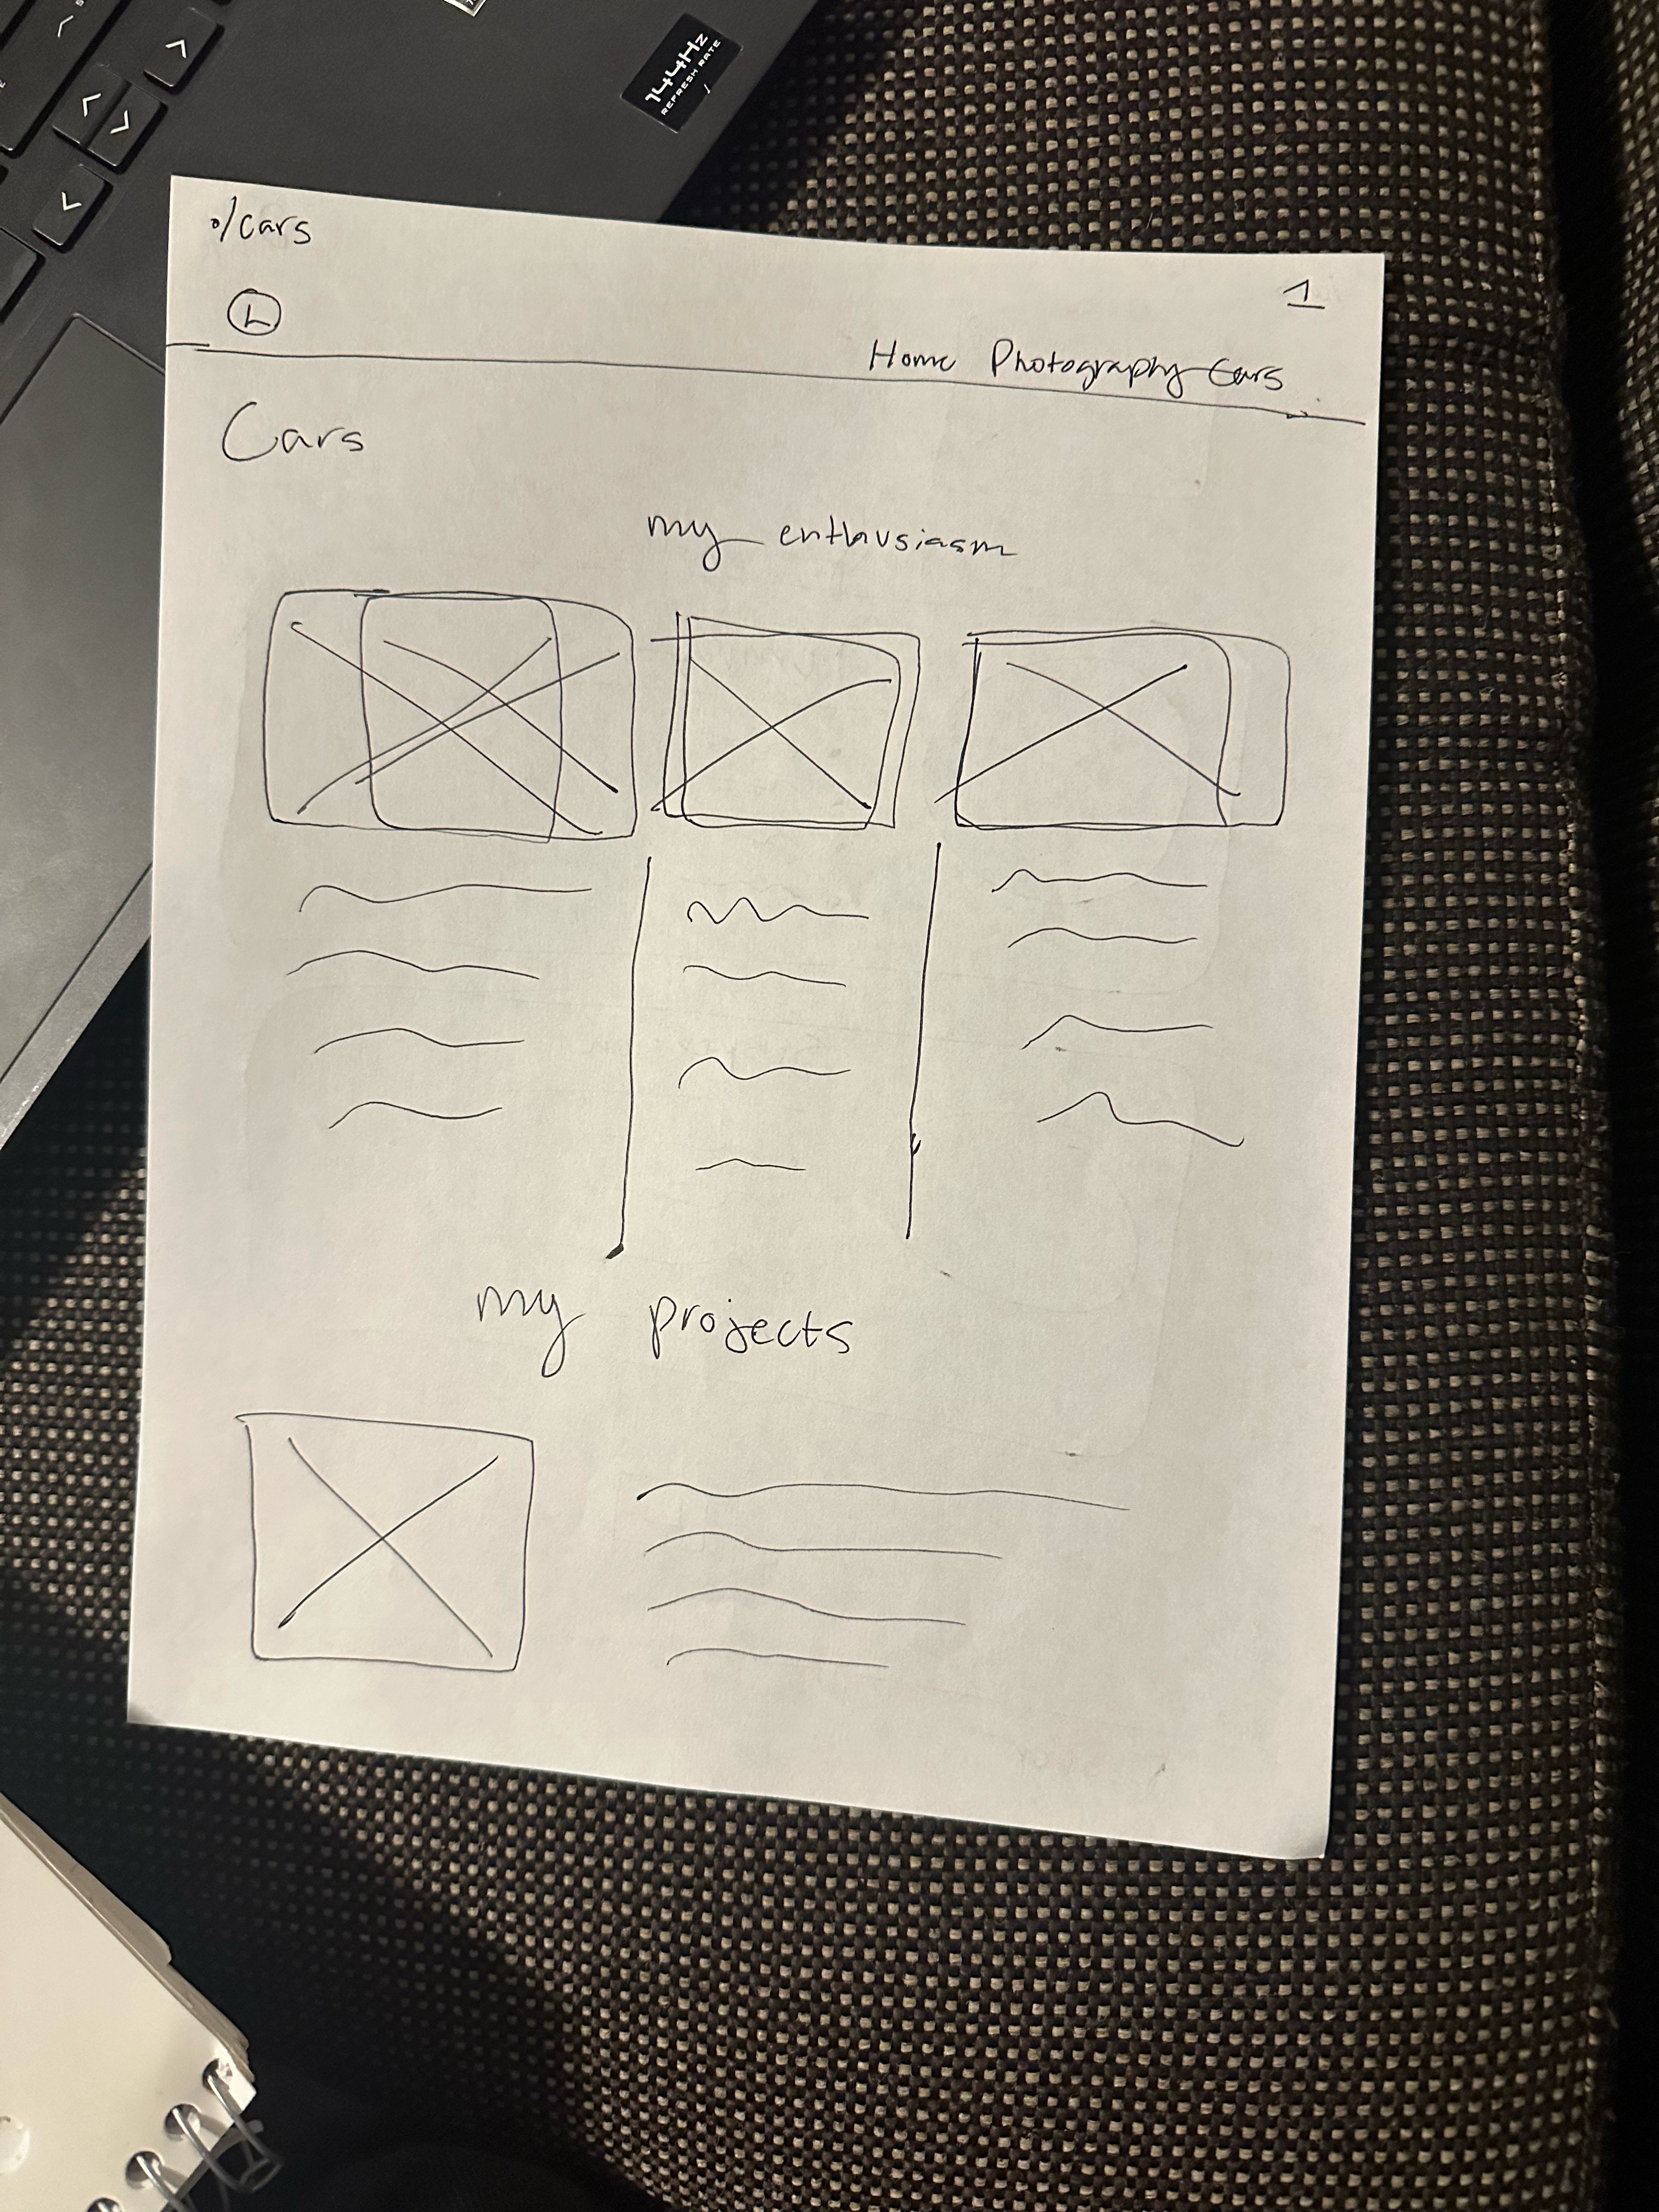 144Hz
REFRESH RATE
%/cars
1
L
Home Photography Cars
Cars
my enthusiasm
my projects